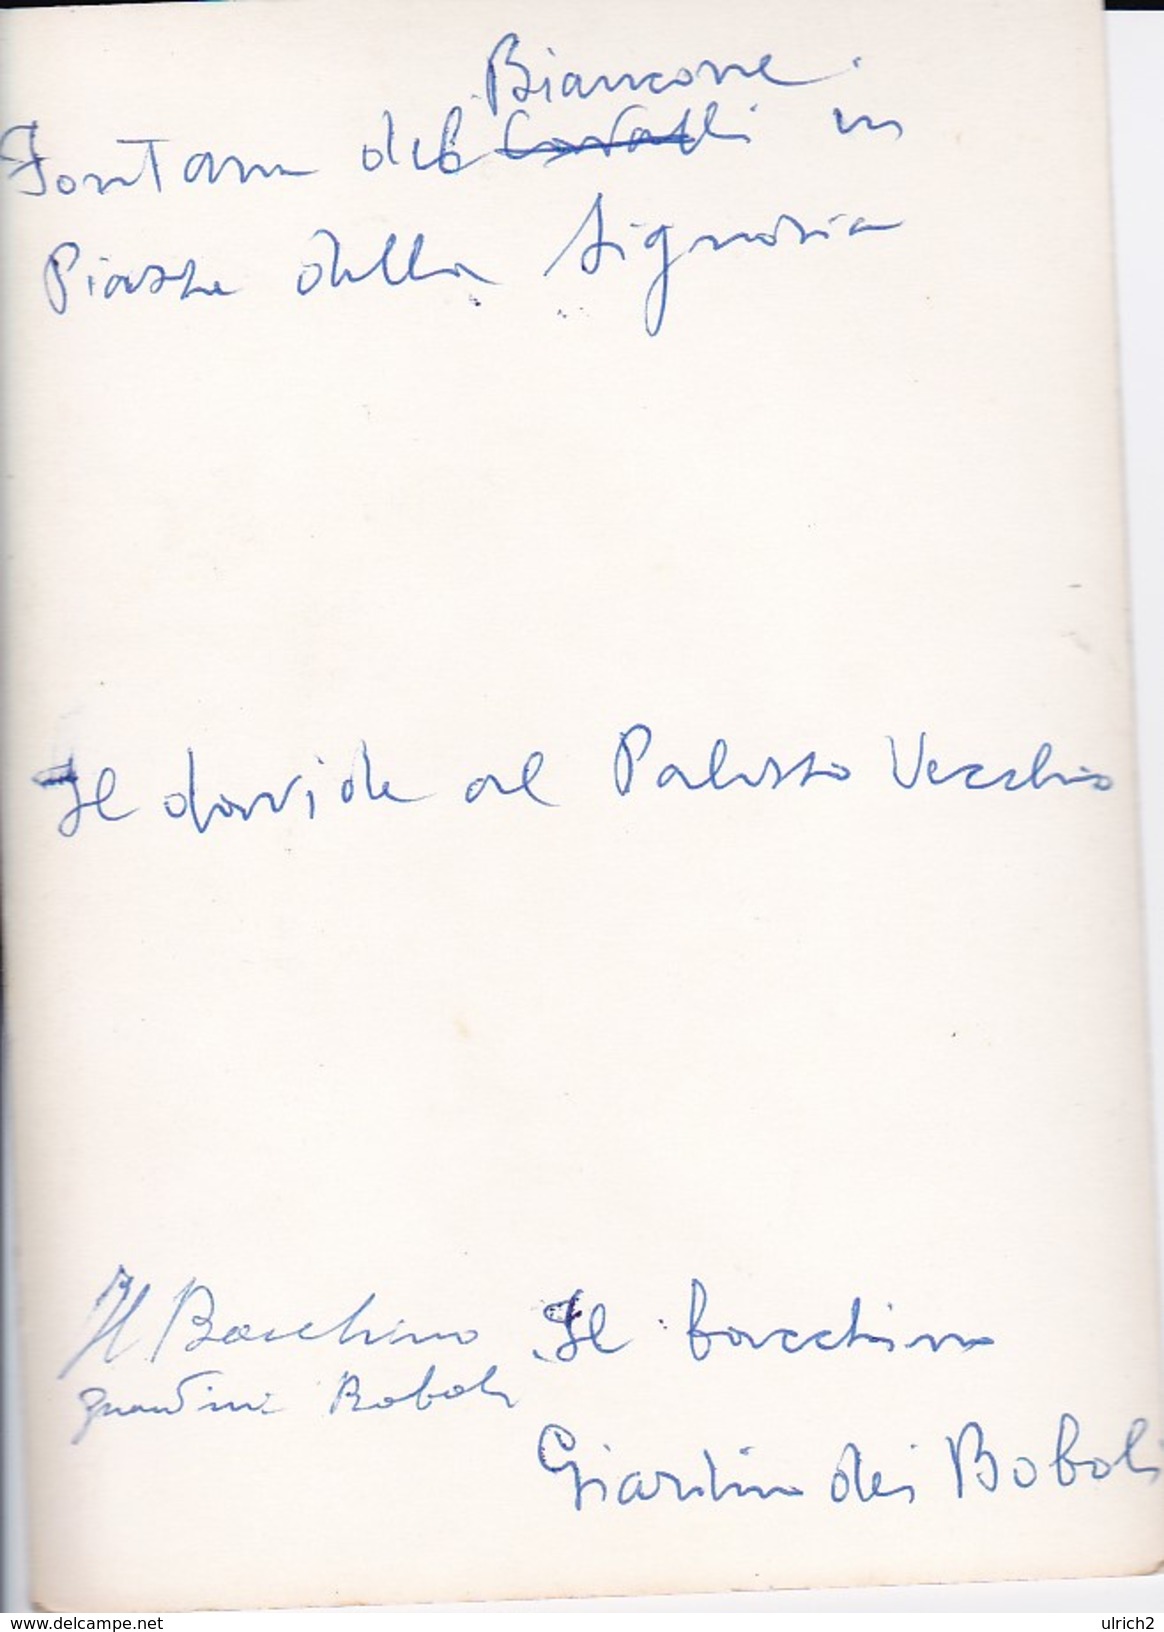 Biancone
Fontana del Cavalli in
Piazza della Signoria
Il davide al Palazzo Vecchio
Il Bacchino
giardini Boboli
Il bacchino
Giardino dei Boboli
delcampe.net
ulrich2